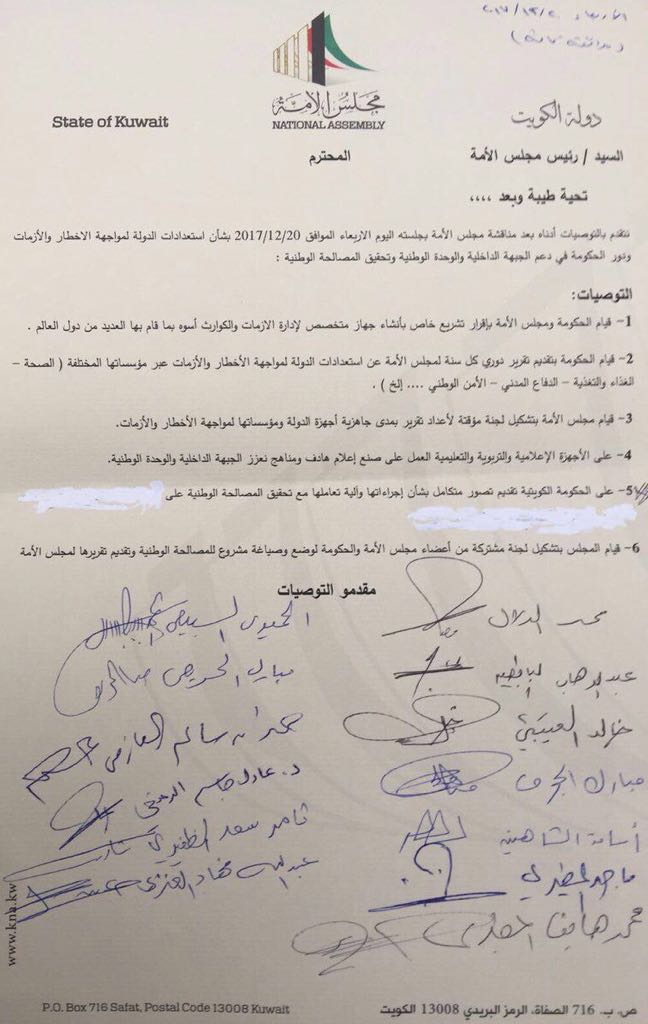 الاربعاء ٢٠١٧/١٢/٢٠
مجلس الأمة
NATIONAL ASSEMBLY
State of Kuwait
دولة الكويت
السيد / رئيس مجلس الأمة المحترم
تحية طيبة وبعد ،،،،
نتقدم بالتوصيات أدناه بعد مناقشة مجلس الأمة بجلسته اليوم الاربعاء الموافق 2017/12/20 بشأن استعدادات الدولة لمواجهة الاخطار والأزمات
ودور الحكومة في دعم الجبهة الداخلية والوحدة الوطنية وتحقيق المصالحة الوطنية :
التوصيات:
1- قيام الحكومة ومجلس الأمة بإقرار تشريع خاص بأنشاء جهاز متخصص لإدارة الازمات والكوارث أسوه بما قام بها العديد من دول العالم .
2- قيام الحكومة بتقديم تقرير دوري كل سنة لمجلس الأمة عن استعدادات الدولة لمواجهة الأخطار والأزمات عبر مؤسساتها المختلفة ( الصحة –
الغذاء والتغذية – الدفاع المدني – الأمن الوطني .... إلخ ) .
3- قيام مجلس الأمة بتشكيل لجنة مؤقتة لأعداد تقرير بمدى جاهزية أجهزة الدولة ومؤسساتها لمواجهة الأخطار والأزمات.
4- على الأجهزة الإعلامية والتربوية والتعليمية العمل على صنع إعلام هادف ومناهج تعزز الجبهة الداخلية والوحدة الوطنية.
5- على الحكومة الكويتية تقديم تصور متكامل بشأن إجراءاتها وآلية تعاملها مع تحقيق المصالحة الوطنية على
6- قيام المجلس بتشكيل لجنة مشتركة من أعضاء مجلس الأمة والحكومة لوضع وصياغة مشروع للمصالحة الوطنية وتقديم تقريرها لمجلس الأمة
مقدمو التوصيات
محمد الدلال
الحميدي السبيعي
عبدالوهاب البابطين
مبارك الحريص
خالد العتيبي
حمدان سالم العازمي
مبارك الحجرف
د. عادل جاسم الدمخي
أسامة الشاهين
ثامر سعد الظفيري
ماجد المطيري
عبدالله فهاد العنزي
محمد هايف
www.kna.kw
P.O. Box 716 Safat, Postal Code 13008 Kuwait
ص. ب. 716 الصفاة، الرمز البريدي 13008 الكويت